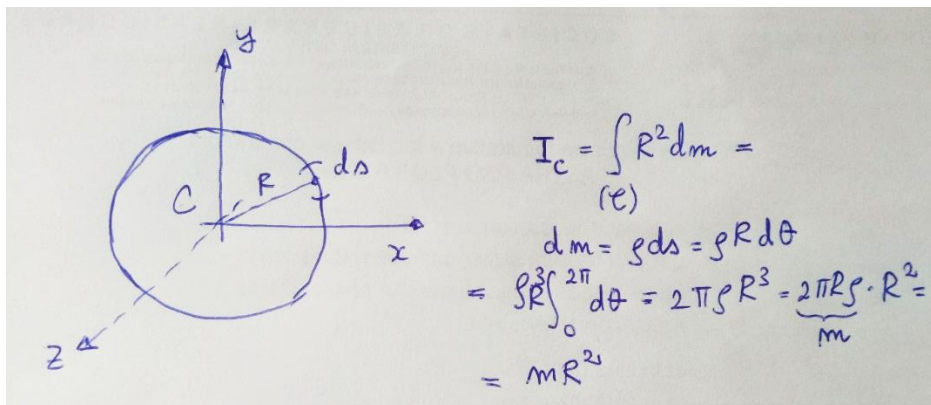 y
ds
R
C
x
z
I_C = ∫_(τ) R² dm =
dm = ρds = ρRdθ
= ρR³ ∫₀^2π dθ = 2πρR³ = 2πRρ · R² =
m
= mR²